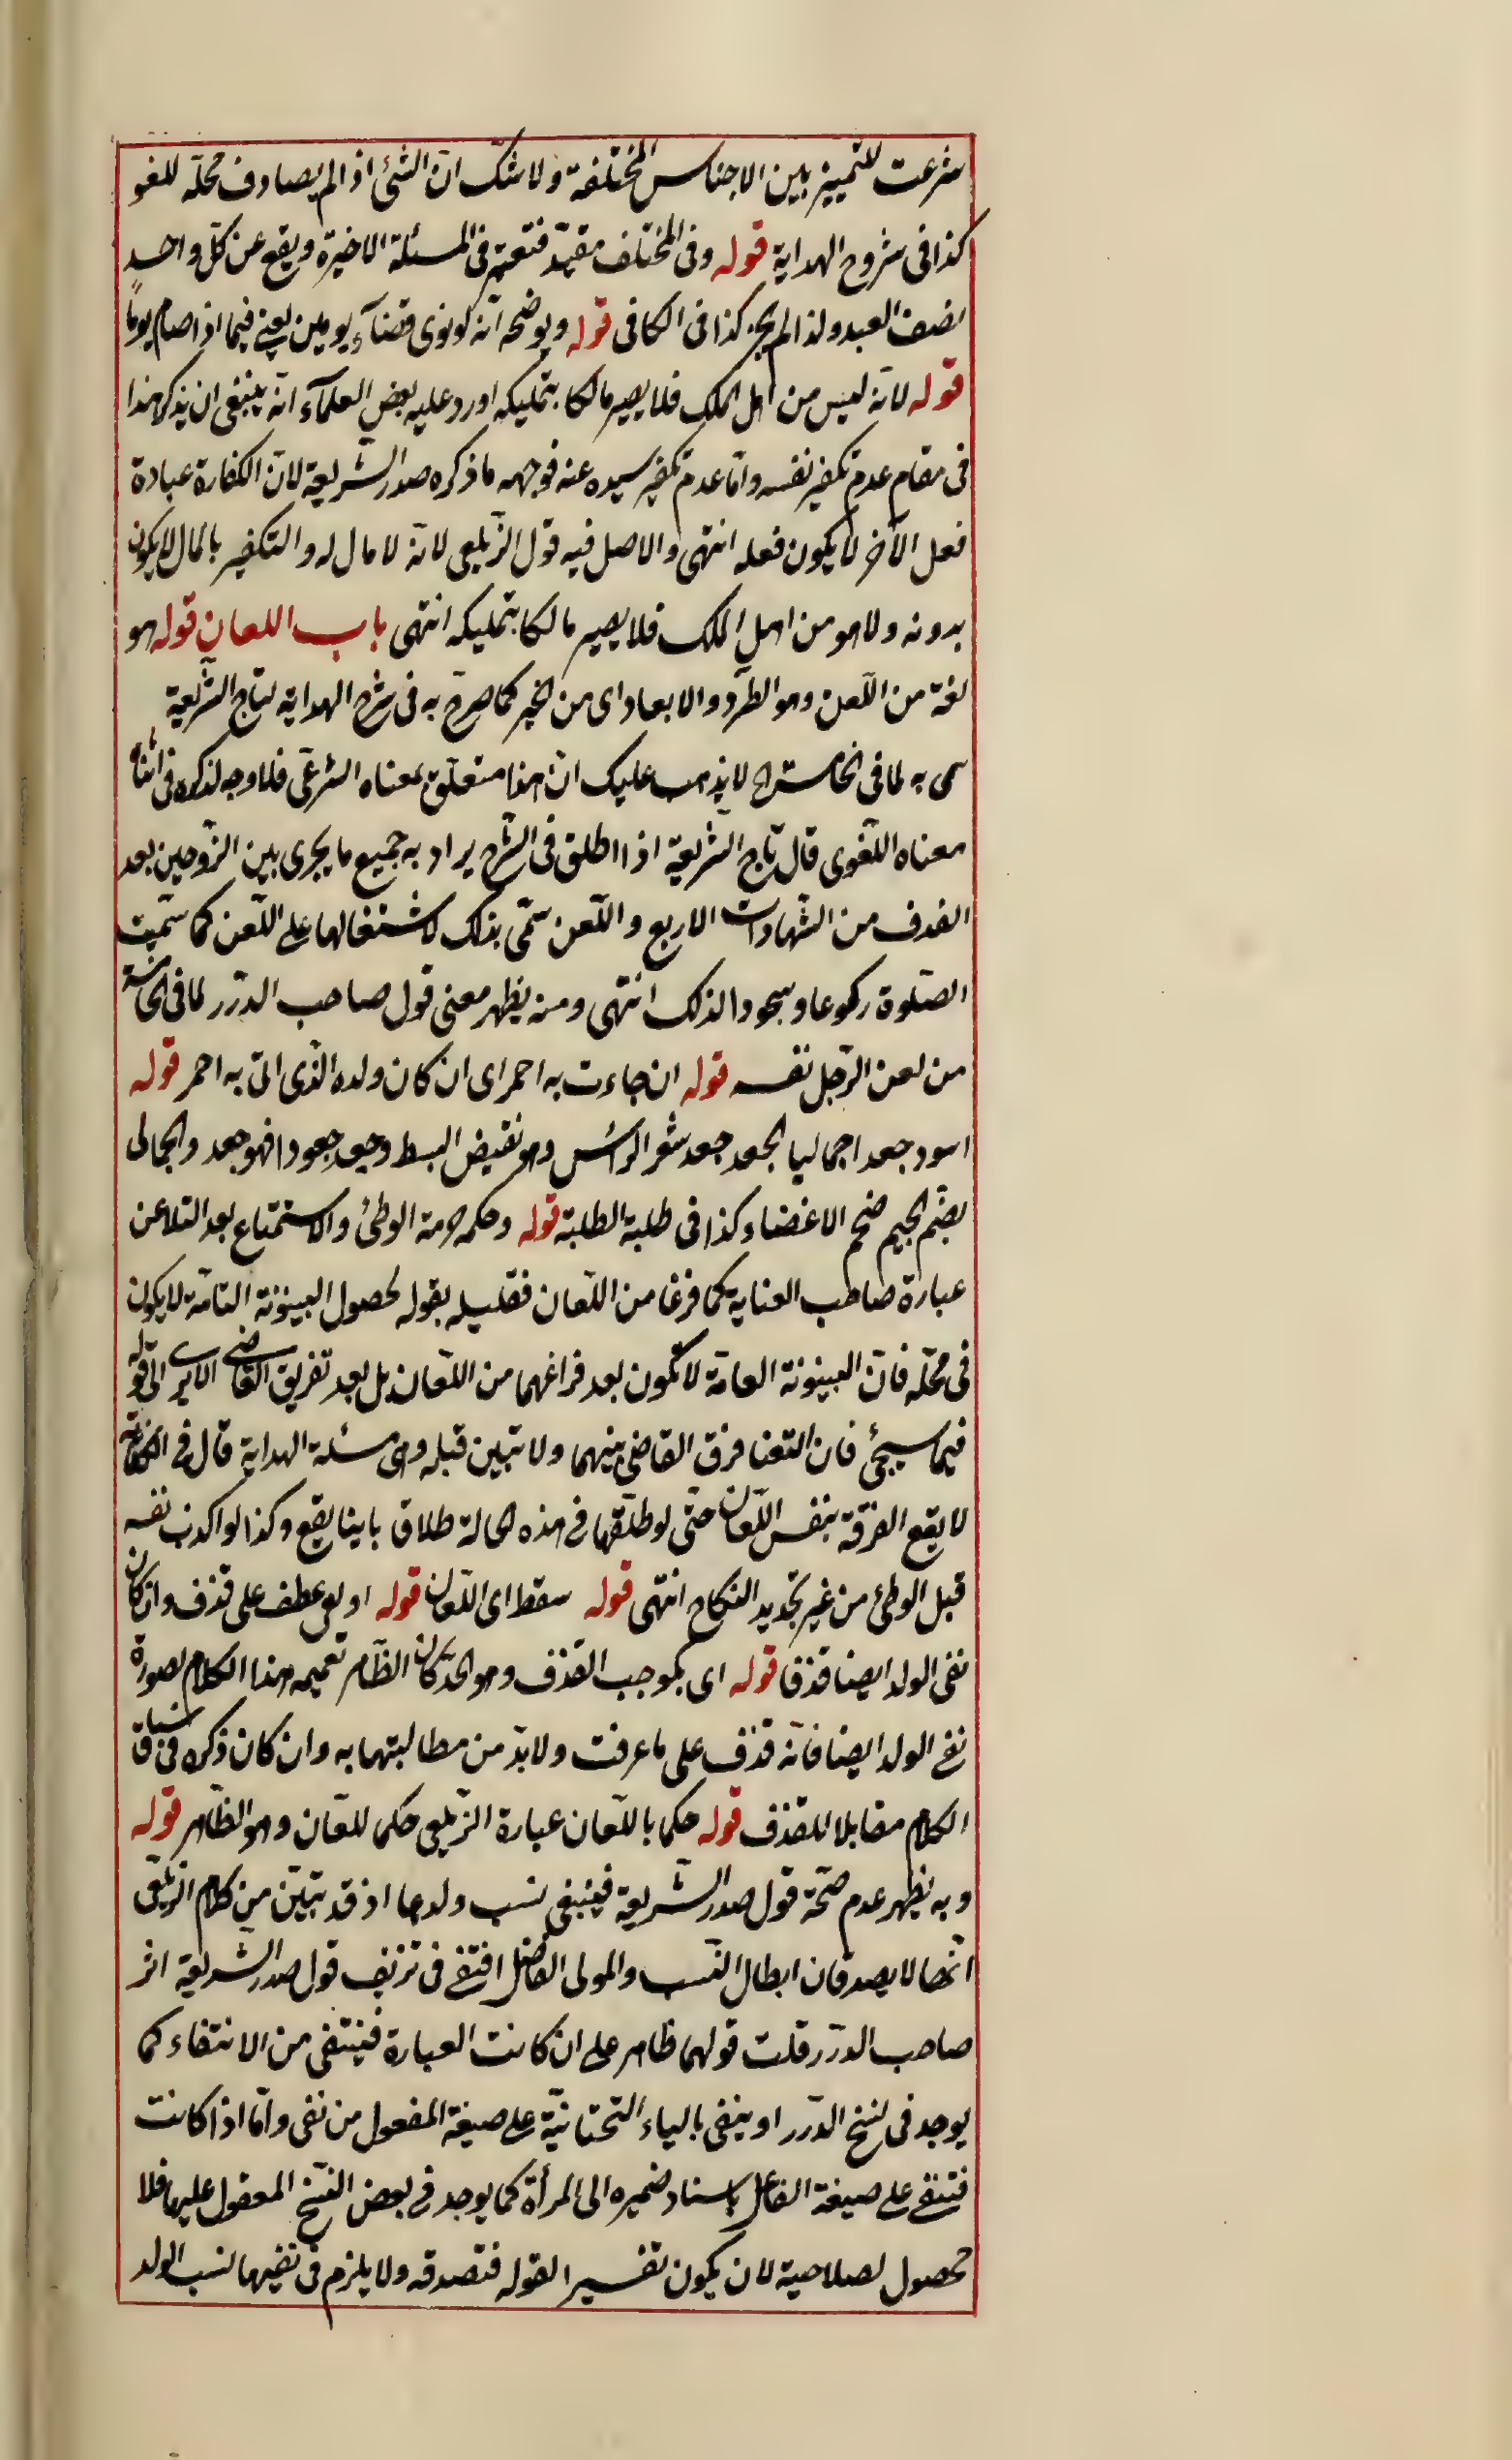 شرعت للتمييز بين الاجناس المختلفة ولا شك انّ الشئ اذا لم يصادف محلّه للغو
كذا فى شروح الهداية قوله وفى المختلف مقيّد فتعتبر فى المسئلة الاخيرة ويقع عن كلّ واحد
نصف العبد ولذا لم يجز كذا فى الكافى قوله ويوضحه انّه لو نوى قضآء يومين يعنى فيما اذا صام يوماً
قوله لانّه ليس من اهل الملك فلا يصير مالكا بتمليكه اورد عليه بعض العلمآء انّه ينبغى ان يذكر هذا
فى مقام عدم تكفير نفسه وامّا عدم تكفير سيده عنه فوجهه ما ذكره صدر الشّريعة لانّ الكفارة عبادة
فعل الآخر لا يكون فعله انتهى والاصل فيه قول الزّيلعى لانّه لا مال له والتكفير بالمال لا يكون
بدونه ولا هو من اهل الملك فلا يصير مالكا بتمليكه انتهى باب اللعان قوله هو
لغة من اللّعن وهو الطّرد والابعاد اى من الخير كما صرّح به فى شرح الهداية لتاج الشّريعة
سمى به لما فى الخامسة الخ لا يذهب عليك انّ هذا متعلّق بمعناه الشرعّى فلا وجه لذكره فى اثناء
معناه اللّغوى قال تاج الشّريعة اذا اطلق فى الشّرع يراد به جميع ما يجرى بين الزّوجين بعد
القذف من الشّهادات الاربع واللّعن سمّى بذلك لاشتغالهما على اللّعن كما سمّيت
الصّلوة ركوعا وسجودا لذلك انتهى ومنه يظهر معنى قول صاحب الدّرر لما فى الخامسة
من لعن الرّجل نفسه قوله ان جاءت به احمر اى ان كان ولده الّذى اتى به احمر قوله
اسود جعدا جماليا الجعد جعد شعر الرأس وهو نقيض البسط وجعد جعودا فهو جعد والجمالى
بضّم الجيم ضخم الاعضاء كذا فى طلبة الطلبة قوله وحكمه حرمة الوطئ والاستمتاع بعد التلاعن
عبارة صاحب العناية كما فرغا من اللّعان فتعليله بقوله لحصول البينونة التامّة لا يكون
فى محلّه فانّ البينونة العامّة لا تكون بعد فراغهما من اللّعان بل بعد تفريق القاضى الا يرى الى قوله
فيما سيجئ فان التعنا فرق القاضى بينهما ولا تبين قبله وهى مسئلة الهداية قال فى الكفاية
لا يقع الفرقة بنفس اللّعان حتّى لو طلّقها فى هذه الحالة طلاق باينا يقع وكذا لو اكذب نفسه
قبل الوطئ من غير تجديد النكاح انتهى قوله سقط اى اللّعان قوله او نفى عطف على قذف وان كان
نفى الولد ايضا قذفا قوله اى بموجب القذف وهو الحدّ كان الظّاهر تعميمه هذا الكلام لصورة
نفى الولد ايضا فانّه قذف على ما عرفت ولا بدّ من مطالبتهما به وان كان ذكره فى سياق
الكلام مقابلا للقذف قوله حكما باللّعان عبارة الزّيلعى حكما للعّان وهو الظّاهر قوله
وبه يظهر عدم صحّة قول صدر الشّريعة فينتفى نسب ولدها اذ قد تبيّن من كلام الزّيلعى
انّهما لا يصدقان ابطال النّسب والمولى الفاضل اقتفى فى تزئيف قول صدر الشّريعة اثر
صاحب الدّرر قلت قولهما ظاهر على ان كانت العبارة فينتفى من الانتفاء كما
يوجد فى نسخ الدّرر او ينفى بالياء التّحتانيّة على صيغة المفعول من نفى وامّا اذا كانت
فتنفى على صيغة الفاعل باسناد ضميره الى المرأة كما يوجد فى بعض النّسخ المعقول عليها فلا
محصول لصلاحية لان يكون تفسيرا لقوله فتصدقه ولا يلزم فى نفيهما لنسب الولد